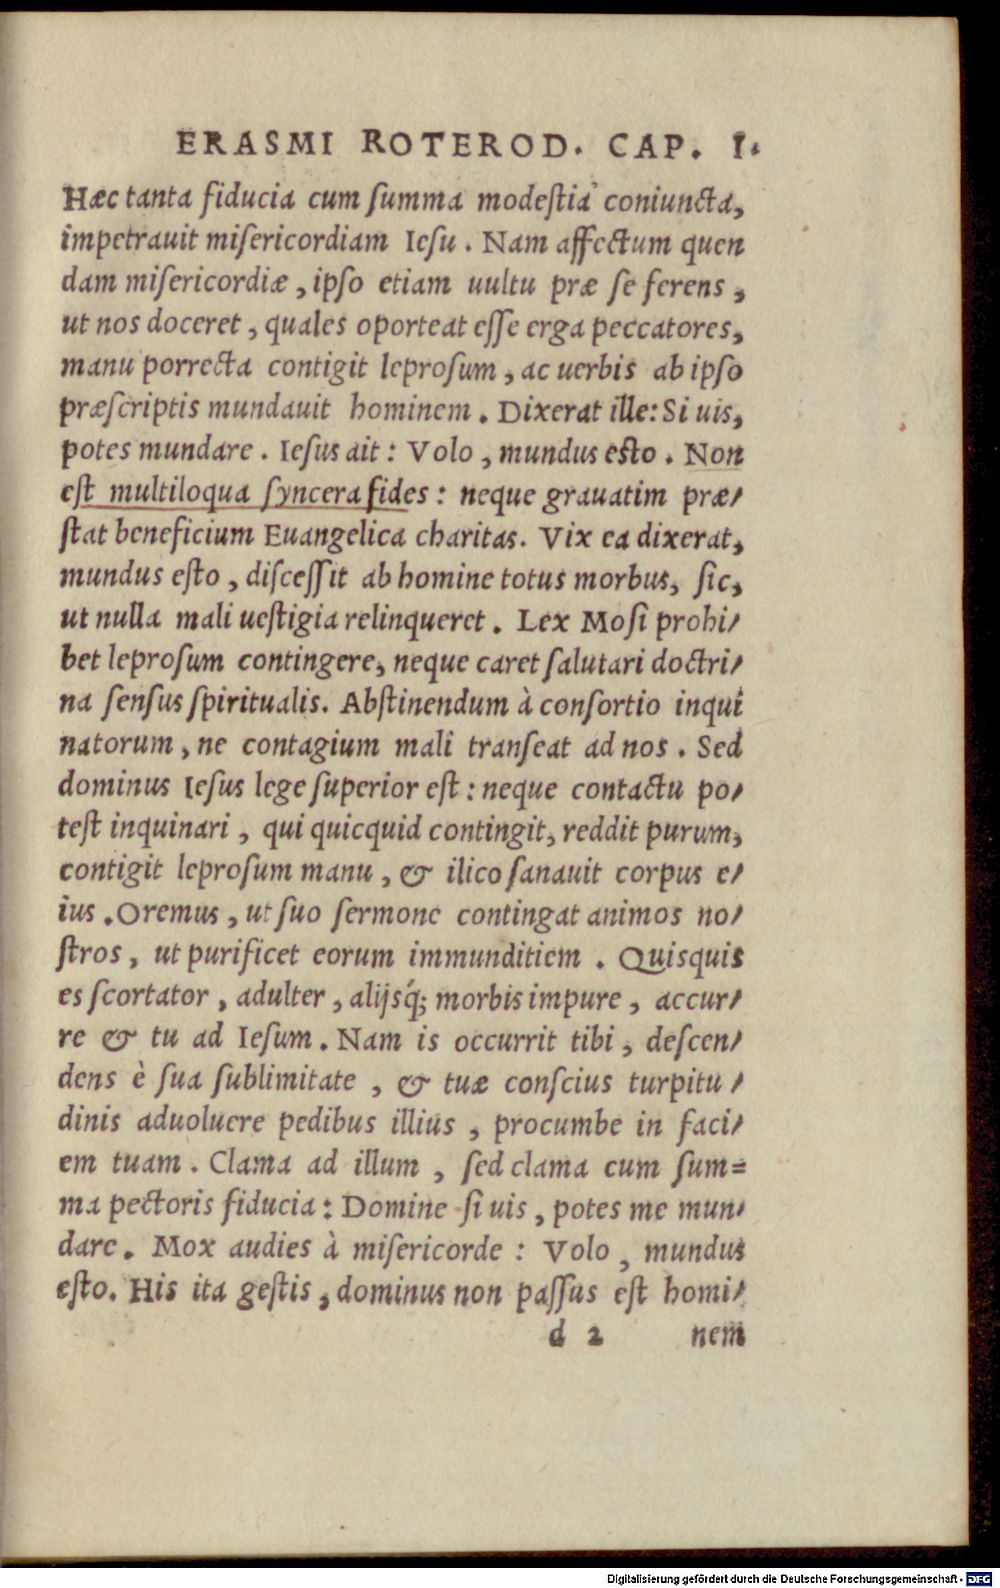 ERASMI ROTEROD. CAP. I.
Hæc tanta fiducia cum ſumma modeſtia coniuncta,
impetrauit miſericordiam Ieſu. Nam affectum quen
dam miſericordiæ, ipſo etiam uultu præ ſe ferens,
ut nos doceret, quales oporteat eſſe erga peccatores,
manu porrecta contigit leproſum, ac uerbis ab ipſo
præſcriptis mundauit hominem. Dixerat ille: Si uis,
potes mundare. Ieſus ait: Volo, mundus eſto. Non
eſt multiloqua ſyncera fides: neque grauatim præ/
ſtat beneficium Euangelica charitas. Vix ea dixerat,
mundus eſto, diſceſſit ab homine totus morbus, ſic,
ut nulla mali ueſtigia relinqueret. Lex Moſi prohi/
bet leproſum contingere, neque caret ſalutari doctri/
na ſenſus ſpiritualis. Abſtinendum à conſortio inqui
natorum, ne contagium mali tranſeat ad nos. Sed
dominus Ieſus lege ſuperior eſt: neque contactu po/
teſt inquinari, qui quicquid contingit, reddit purum,
contigit leproſum manu, & ilico ſanauit corpus e/
ius. Oremus, ut ſuo ſermone contingat animos no/
ſtros, ut purificet eorum immunditiem. Quisquis
es ſcortator, adulter, alijsq́; morbis impure, accur/
re & tu ad Ieſum. Nam is occurrit tibi, deſcen/
dens è ſua ſublimitate, & tuæ conſcius turpitu/
dinis aduoluere pedibus illius, procumbe in faci/
em tuam. Clama ad illum, ſed clama cum ſum=
ma pectoris fiducia: Domine ſi uis, potes me mun/
dare. Mox audies à miſericorde: Volo, mundus
eſto. His ita geſtis, dominus non paſſus eſt homi/
d 2 nem
Digitalisierung gefördert durch die Deutsche Forschungsgemeinschaft - DFG